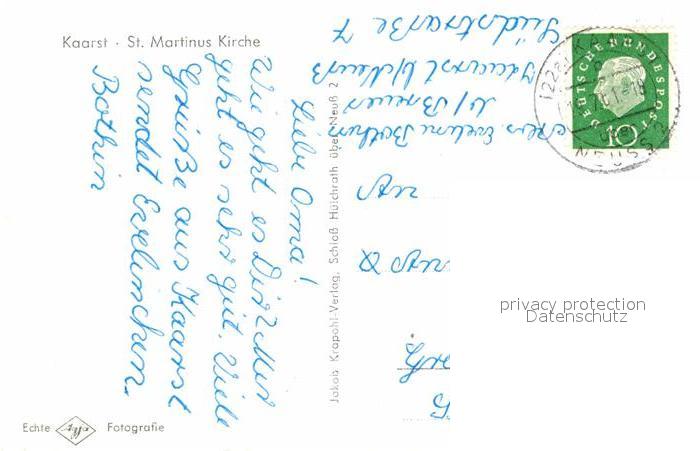 Kaarst · St. Martinus Kirche
Liebe Oma!
Wie geht es Dir? Mir
geht es sehr gut. Viele
Grüße aus Kaarst
sendet Evelinchen.
Bothin
Evelin Bothin
b/ Breuer
Kaarst b/Neuß
Südstraße 7
An
DEUTSCHE BUNDESPOST
10
NEUSS 2
Jakob Krapohl-Verlag, Schloß Hülchrath über Neuß 2
privacy protection
Datenschutz
Echte Agfa Fotografie